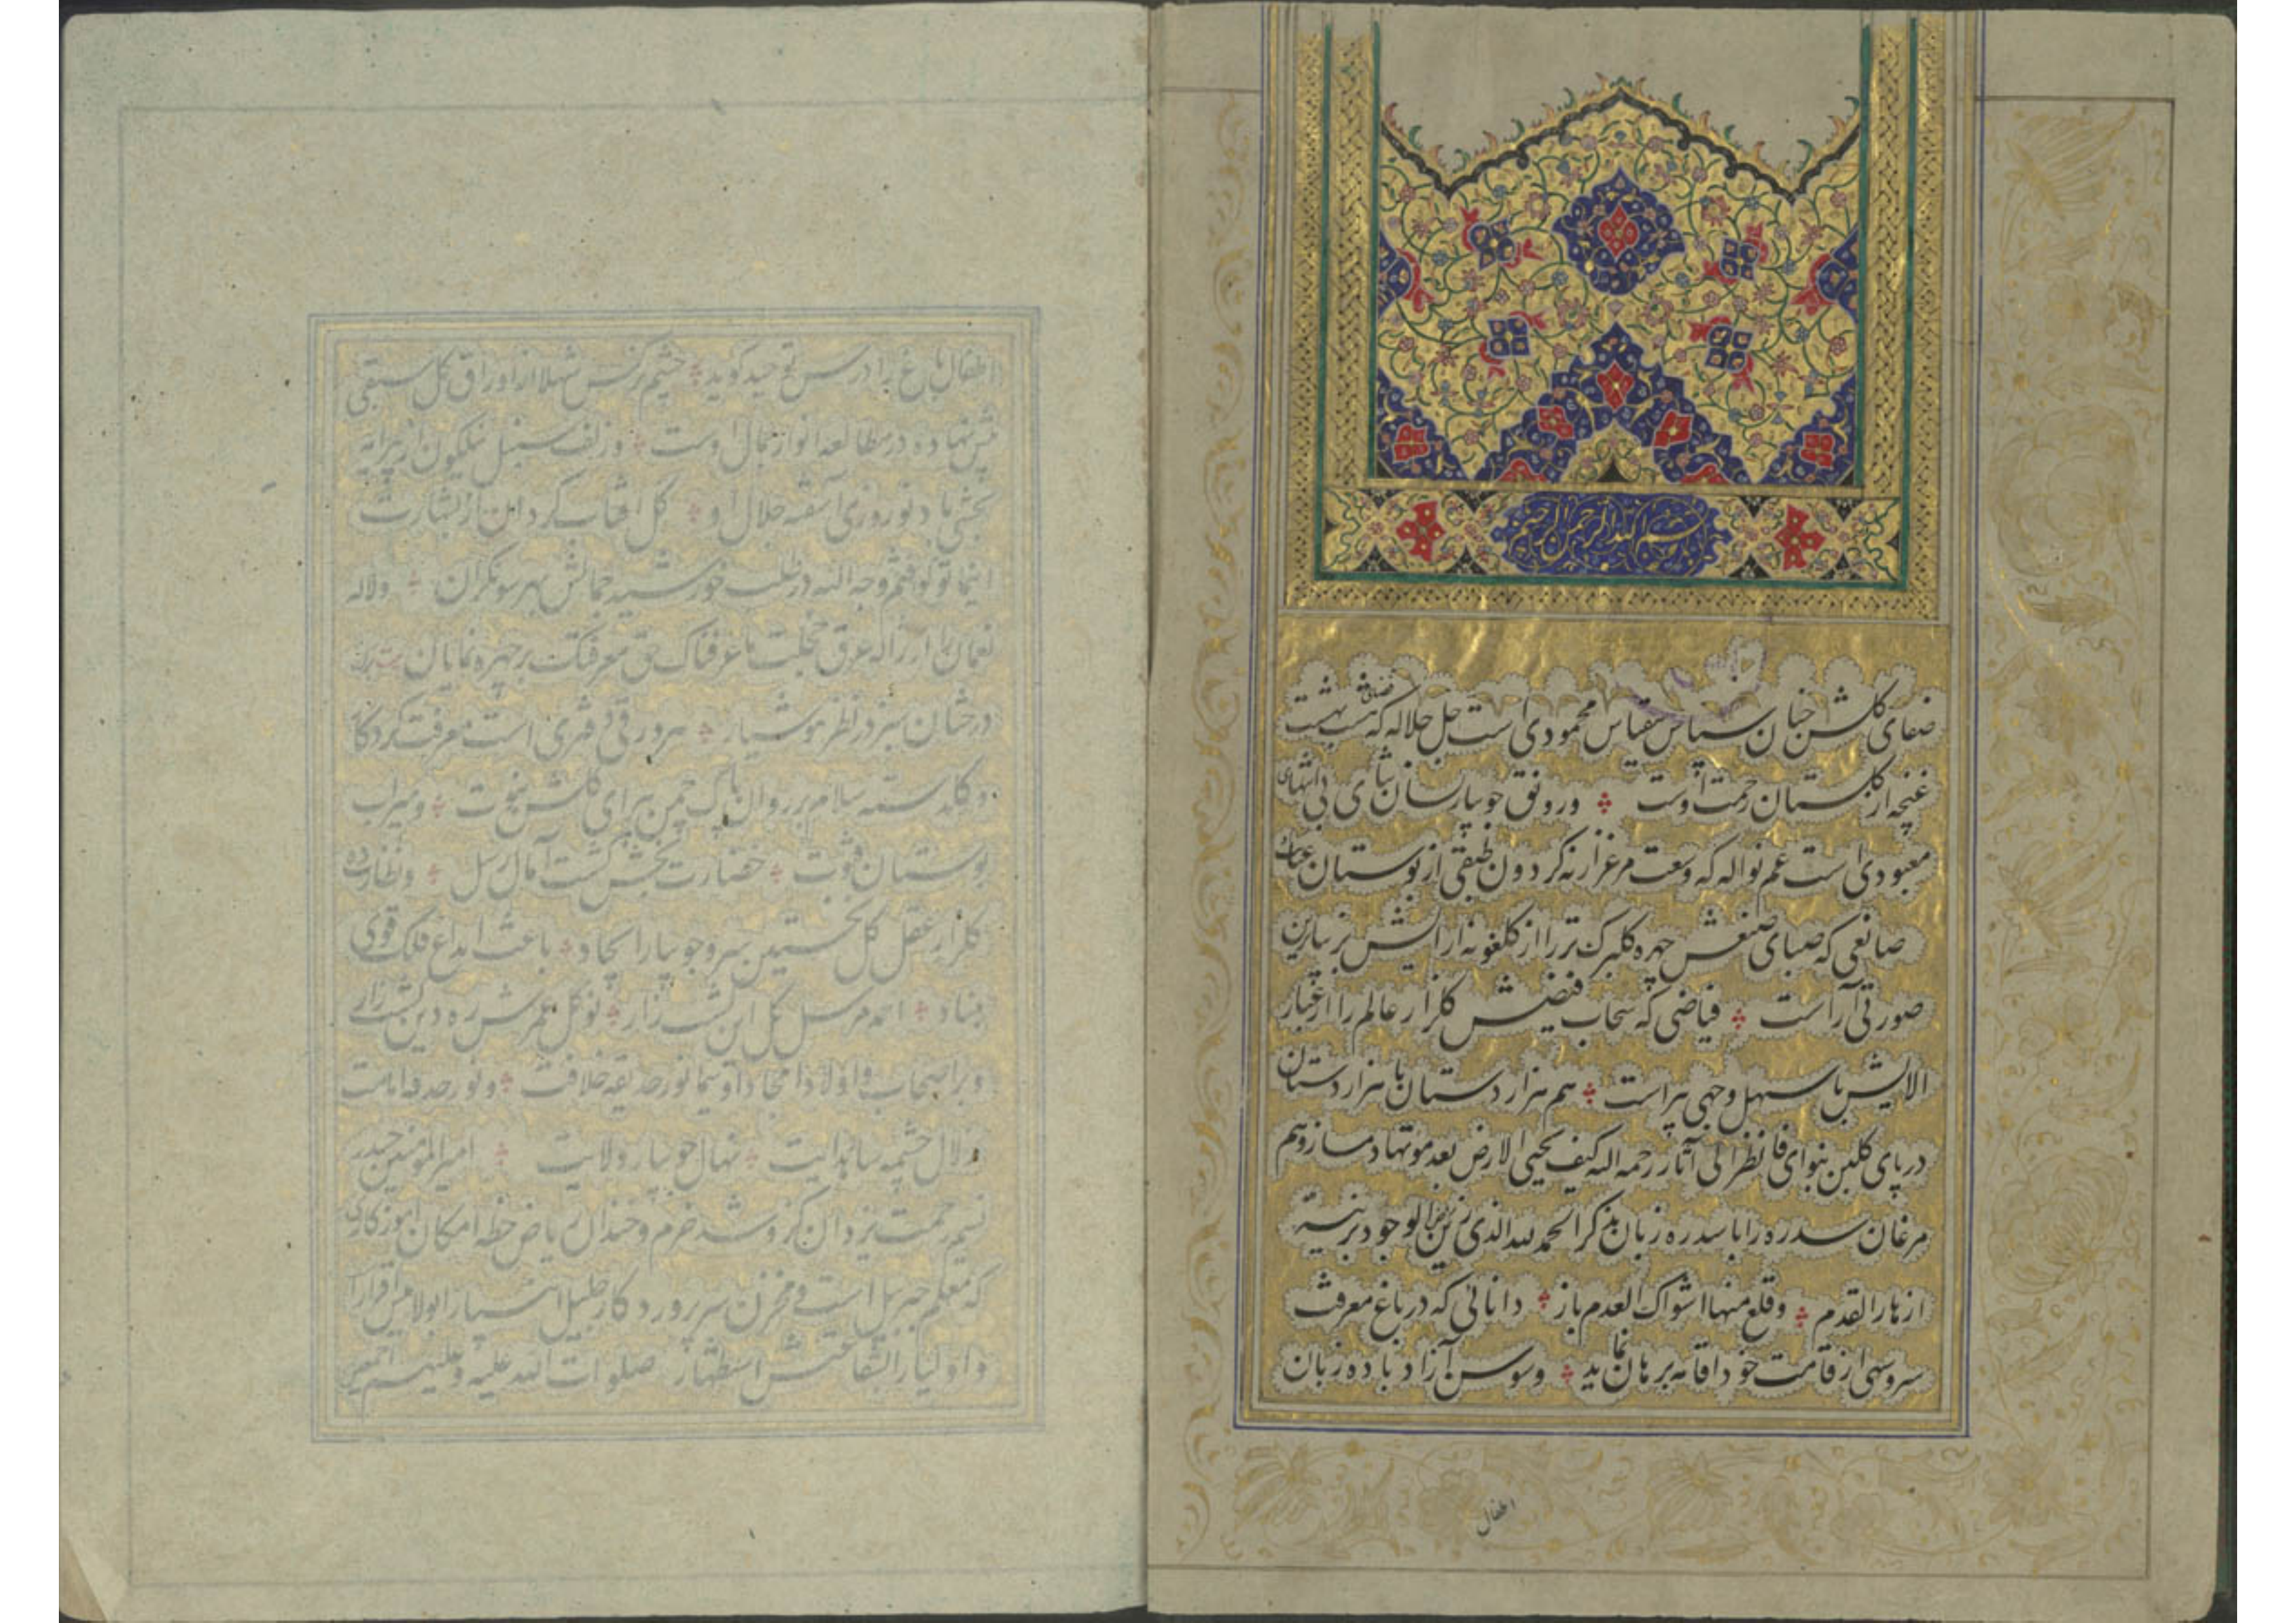 بسم الله الرحمن الرحیم
صفای کلشن جنان سپاس بیقیاس محمودی است جل جلاله که هشت بهشت
غنچه از کلستان رحمت اوست ورونق جویبار لسان ثنای بی انتهای
معبودی است عم نواله که وسعت مرغزار نه کردون طبقی از بوستان
صانعی که صبای صنعش چهره کلبرک تر را از کلغونه ارایش بزیباترین
صورتی آراست فیاضی که سحاب فیضش کلزار عالم را از غبار
الایش باسهل وجهی پیراست هم هزار دستان با هزار دستان
در پای کلبن بنوای فانظر الی آثار رحمه الله کیف یحیی الارض بعد موتها دمساز وهم
مرغان سدره را با سدره زبان بذکر الحمد لله الذی زین الوجود بزینة
ازهار القدم وقلع منها اشواک العدم باز دانائی که در باغ معرفت
سروسهی از قامت خود اقامه برهان نماید وسوسن آزاد با ده زبان
اطفال
اطفال باغ را درس توحید کوید چشم نرکس شهلا از اوراق کل سبقی
پیش نهاده در مطالعه انوار جمال اوست وزلف سنبل نیلکون از پیرایه
بخشی باد نوروزی آشفته جلال او کل آفتاب کردان از بشارت
اینما تولوا فثم وجه الله در طلب خورشید جمالش بهر سو نکران ولاله
نعمان را از ژاله عرق خجلت ما عرفناک حق معرفتک بر چهره نمایان بیت برک
درختان سبز در نظر هوشیار هر ورقی دفتری است معرفت کردکار
وکلدسته سلام بر روان پاک چمن پیرای کلشن نبوت ومیراب
بوستان فتوت خضارت بخش کشت آمال رسل ونظارت ده
کلزار عقل کل نخستین سرو جویبار ایجاد باعث ابداع فلک قوی
بنیاد احمد مرسل کل این کشتزار نوکل عمرش ره دین کشتزار
وبر اصحاب واولاد امجاد او سیما نور حدیقه خلافت ونور حدقه امامت
زلال چشمه سار هدایت نهال جویبار ولایت امیر المومنین حیدر
نسیم رحمت یزدان کزو شد خرم وخندان ریاض خطه امکان
که معلم جبریل است ومخزن سر پرورد کار جلیل انبیا را بولایش اقرار
واولیا را بشفاعتش استظهار صلوات الله علیه وعلیهم اجمعین